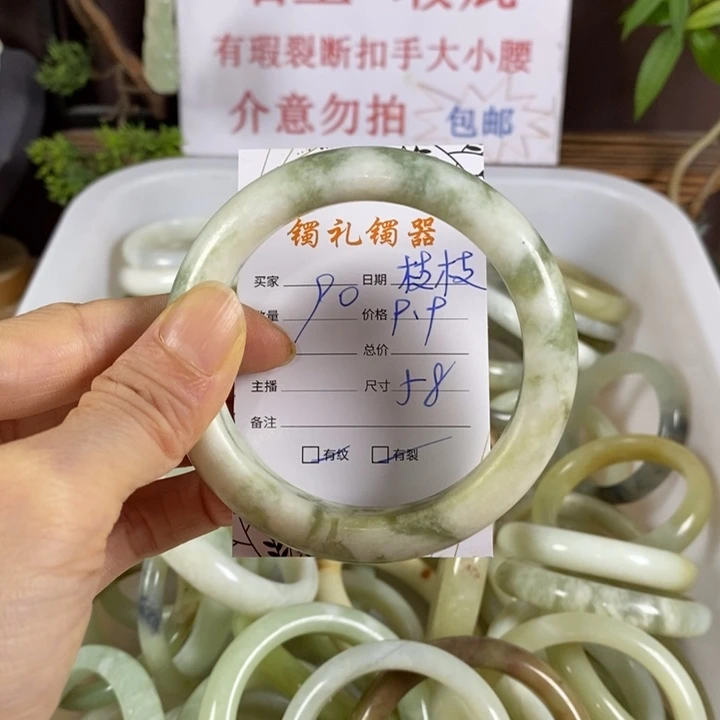 有瑕裂断扣手大小腰
介意勿拍 包邮
镯礼镯器
买家 90 日期 枝枝
量 价格 9.9
总价
主播 尺寸 58
备注
有纹 有裂